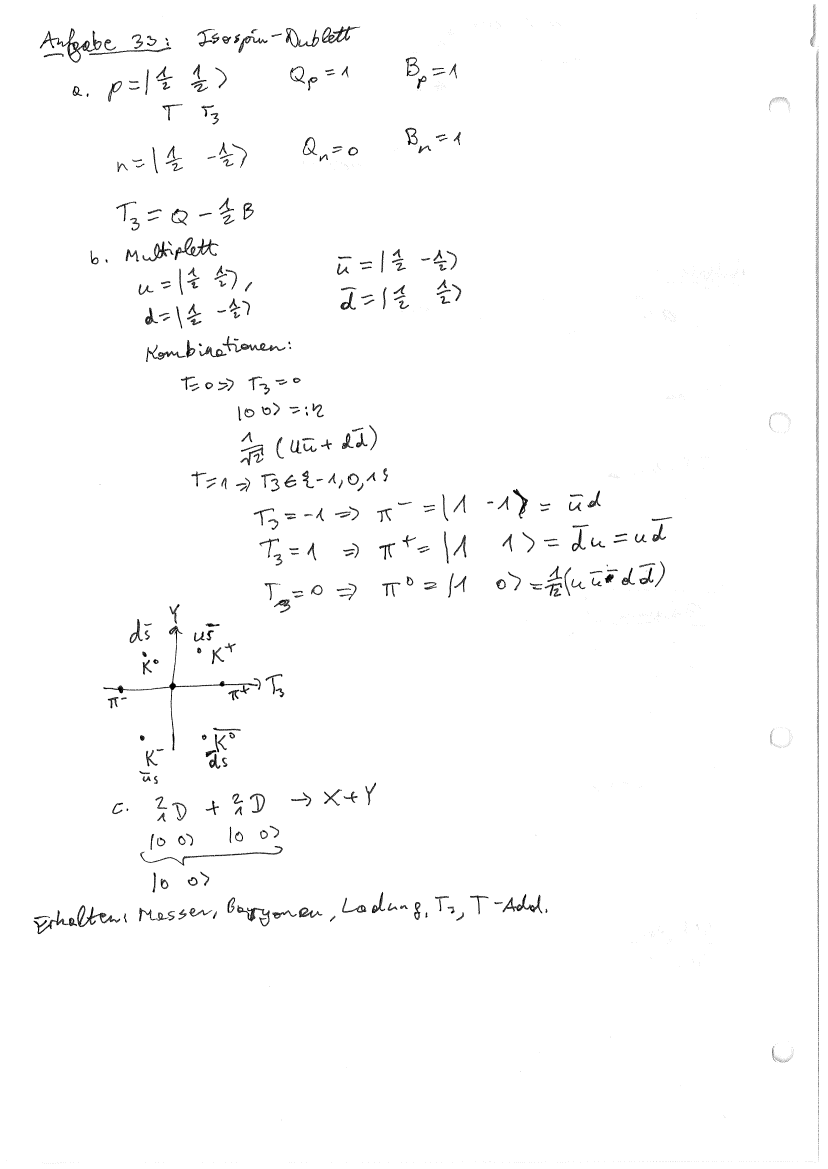 Aufgabe 33: Isospin-Dublett
a. p=|½ ½⟩ Q_p=1 B_p=1
T T₃
n=|½ -½⟩ Q_n=0 B_n=1
T₃=Q-½B
b. Multiplett
u=|½ ½⟩, ū=|½ -½⟩
d=|½ -½⟩ d̄=|½ ½⟩
Kombinationen:
T=0⇒ T₃=0
|0 0⟩ =:η
1/√2 (uū+dd̄)
T=1⇒ T₃∈{-1,0,1}
T₃=-1⇒ π⁻=|1 -1⟩= ūd
T₃=1 ⇒ π⁺=|1 1⟩= d̄u=ud̄
T₃=0 ⇒ π⁰=|1 0⟩=1/√2(uū-dd̄)
Y
ds̄ us̄
K⁰ K⁺
π⁻ π⁺ T₃
K⁻ K̄⁰
ūs d̄s
c. ²₁D + ²₁D → X+Y
|0 0⟩ |0 0⟩
|0 0⟩
Erhalten: Massen, Baryonen, Ladung, T₃, T-Add.